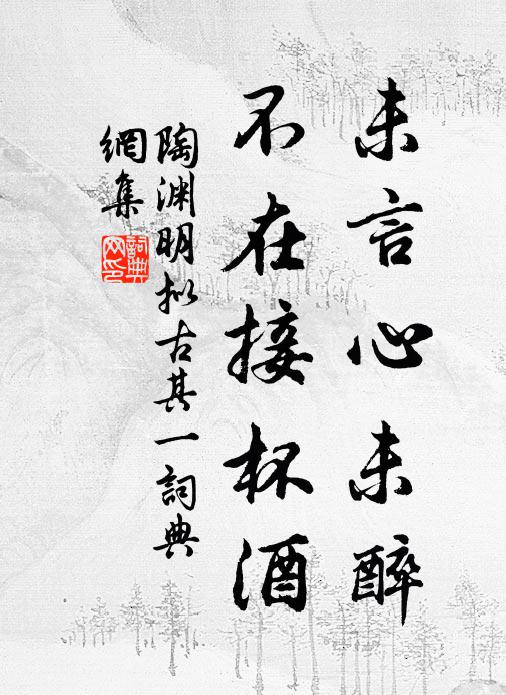 未言心未醉
不在接杯酒
陶渊明拟古其一詞典
網集
詞典
网印